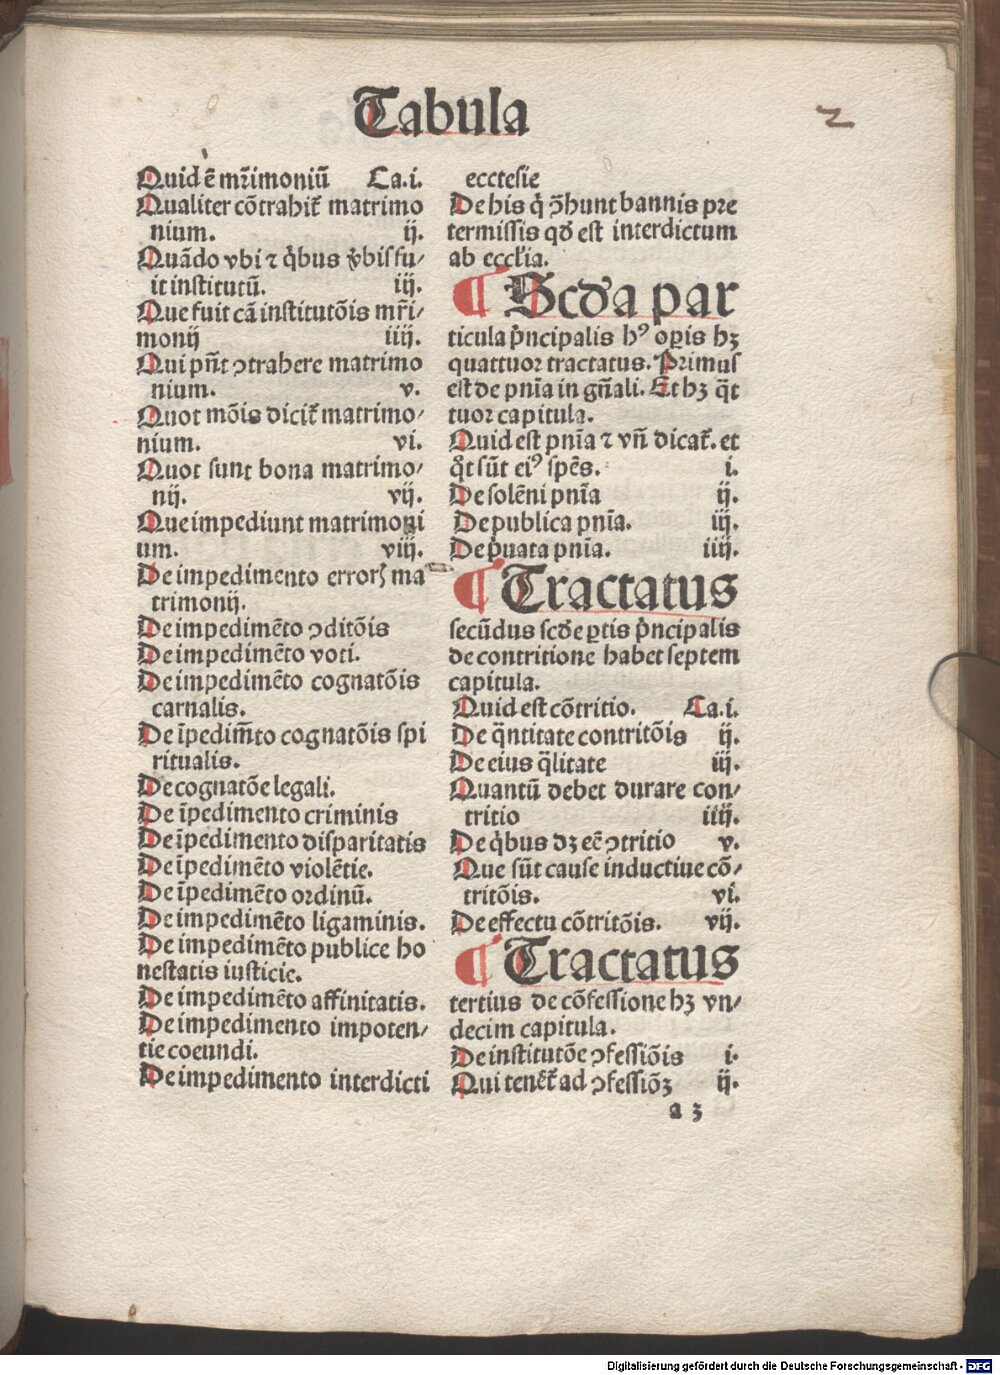 Tabula
2
Quid ē mr̄imoniū Ca.i.
Qualiter cōtrahit᷑ matrimo
nium. ij.
Quādo vbi ⁊ q̇bus v̓bis fu⸗
it institutū. iij.
Que fuit cā institutōis mr̄i⸗
monij iiij.
Qui pn̄t ꝯtrahere matrimo
nium. v.
Quot mōis dicit᷑ matrimo⸗
nium. vi.
Quot sunt bona matrimo⸗
nij. vij.
Que impediunt matrimoni
um. viij.
De impedimento erroꝝ ma
trimonij.
De impedimēto ꝯditōis
De impedimēto voti.
De impedimēto cognatōis
carnalis.
De īpedim̄to cognatōis spi
ritualis.
De cognatōe legali.
De īpedimento criminis
De īpedimento disparitatis
De īpedimēto violētie.
De īpedimēto ordinū.
De impedimēto ligaminis.
De impedimēto publice ho
nestatis iusticie.
De impedimēto affinitatis.
De impedimento impoten⸗
tie coeundi.
De impedimento interdicti
ecctesie
De his q̇ ꝯ̄hunt bannis pre
termissis qd̓ est interdictum
ab eccl̓ia.
¶ Scd̓a par
ticula p̓ncipalis hꝰ oꝑis hꝫ
quattuor tractatus. Primus
est de pnīa in gn̄ali. Et hꝫ q̄t
tuor capitula.
Quid est pnīa ⁊ vn̄ dicat᷑. et
q̊t sūt eiꝰ spēs. i.
De solēni pnīa ij.
De publica pnīa. iij.
De p̓uata pnīa. iiij.
¶ Tractatus
secūdus scd̓e ꝑtis p̓ncipalis
de contritione habet septem
capitula.
Quid est cōtritio. Ca.i.
De q̄ntitate contritōis ij.
De eius q̄litate iij.
Quantū debet durare con⸗
tritio iiij.
De q̇bus dꝫ eē ꝯtritio v.
Que sūt cause inductiue cō⸗
tritōis. vi.
De effectu cōtritōis. vij.
¶ Tractatus
tertius de cōfessione hꝫ vn⸗
decim capitula.
De institutōe ꝯfessiōis i.
Qui tenēt᷑ ad ꝯfessiōꝫ ij.
a 3
Digitalisierung gefördert durch die Deutsche Forschungsgemeinschaft - DFG